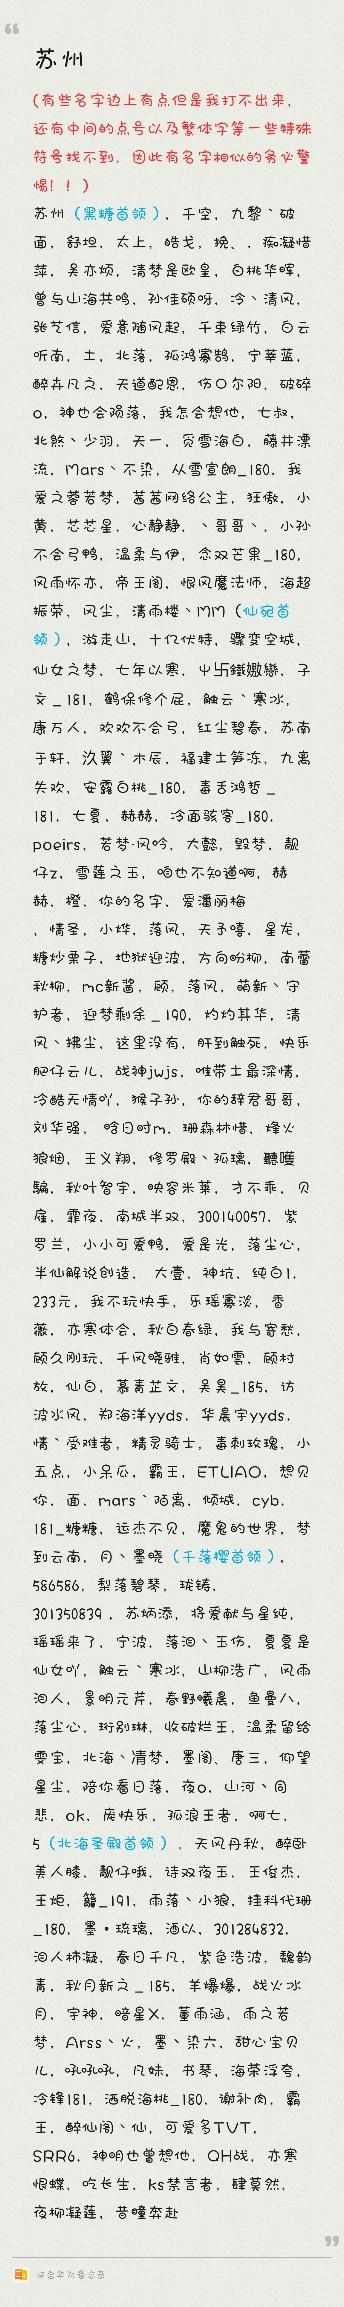 苏州
(有些名字边上有点但是我打不出来，
还有中间的点号以及繁体字等一些特殊
符号找不到，因此有名字相似的务必警
惕！！)
苏州（黑糖首领），千空，九黎丶破
面，舒坦，太上，皓戈，挽、，痴凝惜
萍，吴亦烦，清梦是欧皇，白桃华晖，
曾与山海共鸣，孙佳硕呀，冷丶清风，
张芝信，爱意随风起，千束绿竹，白云
听南，土，北落，孤鸿寡鹄，宁莘蓝，
醉卉凡之，天道配恩，伤〇尔阳，破碎
o，神也会陨落，我怎会想他，七叔，
北煞丶少羽，天一，觅雪海白，藤井漂
流，Mars丶不染，从雪宣朗_180，我
爱之蓉若梦，茜茜网络公主，狂傲，小
黄，芯芯星，心静静，丶哥哥丶，小孙
不会弓鸭，温柔与伊，念双芒果_180，
风雨怀亦，帝王阁，恨风魔法师，海超
振荣，风尘，清雨楼丶MM（仙宛首
领），游走山，十亿伏特，骤变空城，
仙女之梦，七年以寒，屮卐鐵嫐戀，子
文_181，鹤保修个屁，触云丶寒冰，
康万人，欢欢不会弓，红尘碧春，苏南
于轩，汣翼丶木辰，福建土笋冻，九离
失欢，安露白桃_180，毒舌鸿哲_
181，七夏，赫赫，冷面骇客_180，
poeirs，若梦·风吟，大懿，毁梦，靓
仔z，雪莲之玉，咱也不知道啊，赫
赫，橙，你的名字，爱潘丽梅
，情圣，小烨，落风，天予嘻，星发，
糖炒栗子，地狱迎波，方向盼柳，南蕾
秋柳，mc新酱，顾，落风，萌新丶守
护者，迎梦剩余_190，灼灼其华，清
风丶拂尘，这里没有，肝到触死，快乐
肥仔云儿，战神jwjs，唯带土最深情，
冷酷无情吖，猴子孙，你的辞君哥哥，
刘华强， 啥日时m，珊森林惜，烽火
狼烟，王义翔，修罗殿丶孤璃，聽嚄
騙，秋叶智宇，映容米莱，才不乖，贝
雇，霏夜，南城半双，300140057，紫
罗兰，小小可爱鸭，爱是光，落尘心，
半仙解说创造， 大壹，神坑，纯白1，
233元，我不玩快手，乐瑶寡淡，香
薇，亦寒体会，秋白春绿，我与寄愁，
顾久刚玩，千风晓雅，肖如雲，顾村
放，仙白，慕青芷文，吴昊_185，访
波水风，郑海洋yyds，华晨宇yyds，
情丶受难者，精灵骑士，毒刺玫瑰，小
五点，小呆瓜，霸王，ETLIAO，想见
你，面，mars丶陌离，倾城，cyb，
181_糖糖，运杰不见，魔鬼的世界，梦
到云南，月丶墨晓（千落樱首领），
586586，梨落碧琴，珑铸，
301350839，苏炳添，将爱献与星纯，
瑶瑶来了，宁波，落泪丶玉伤，夏夏是
仙女吖，触云丶寒冰，山柳浩广，风雨
泪人，景明元芹，春野曦晨，鱼曼八，
落尘心，珩别琳，收破烂王，温柔留给
雯宝，北海丶清梦，墨阁，唐三，仰望
星尘，陪你看日落，夜o，山河丶同
悲，ok，庑快乐，孤浪王者，啊七，
5（北海圣殿首领），天风丹秋，醉卧
美人膝，靓仔哦，诗双夜玉，王俊杰，
王炬，籬_191，雨落丶小狼，挂科代珊
_180，墨·琉璃，酒以，301284832，
泪人柿凝，春日千凡，紫色浩波，魏韵
青，秋月新之_185，羊爆爆，战火冰
月，宇神，暗星X，董雨涵，雨之若
梦，Arss丶火，墨丶染六，甜心宝贝
儿，吼吼吼，凡妹，书琴，海荣浮夸，
冷锋181，洒脱海桃_180，谢补肉，霸
王，醉仙阁丶仙，可爱多TVT，
SRR6，神明也曾想他，QH战，亦寒
恨蝶，吃长生，ks禁言者，肆莫然，
夜柳凝莲，昔瞳奔赴